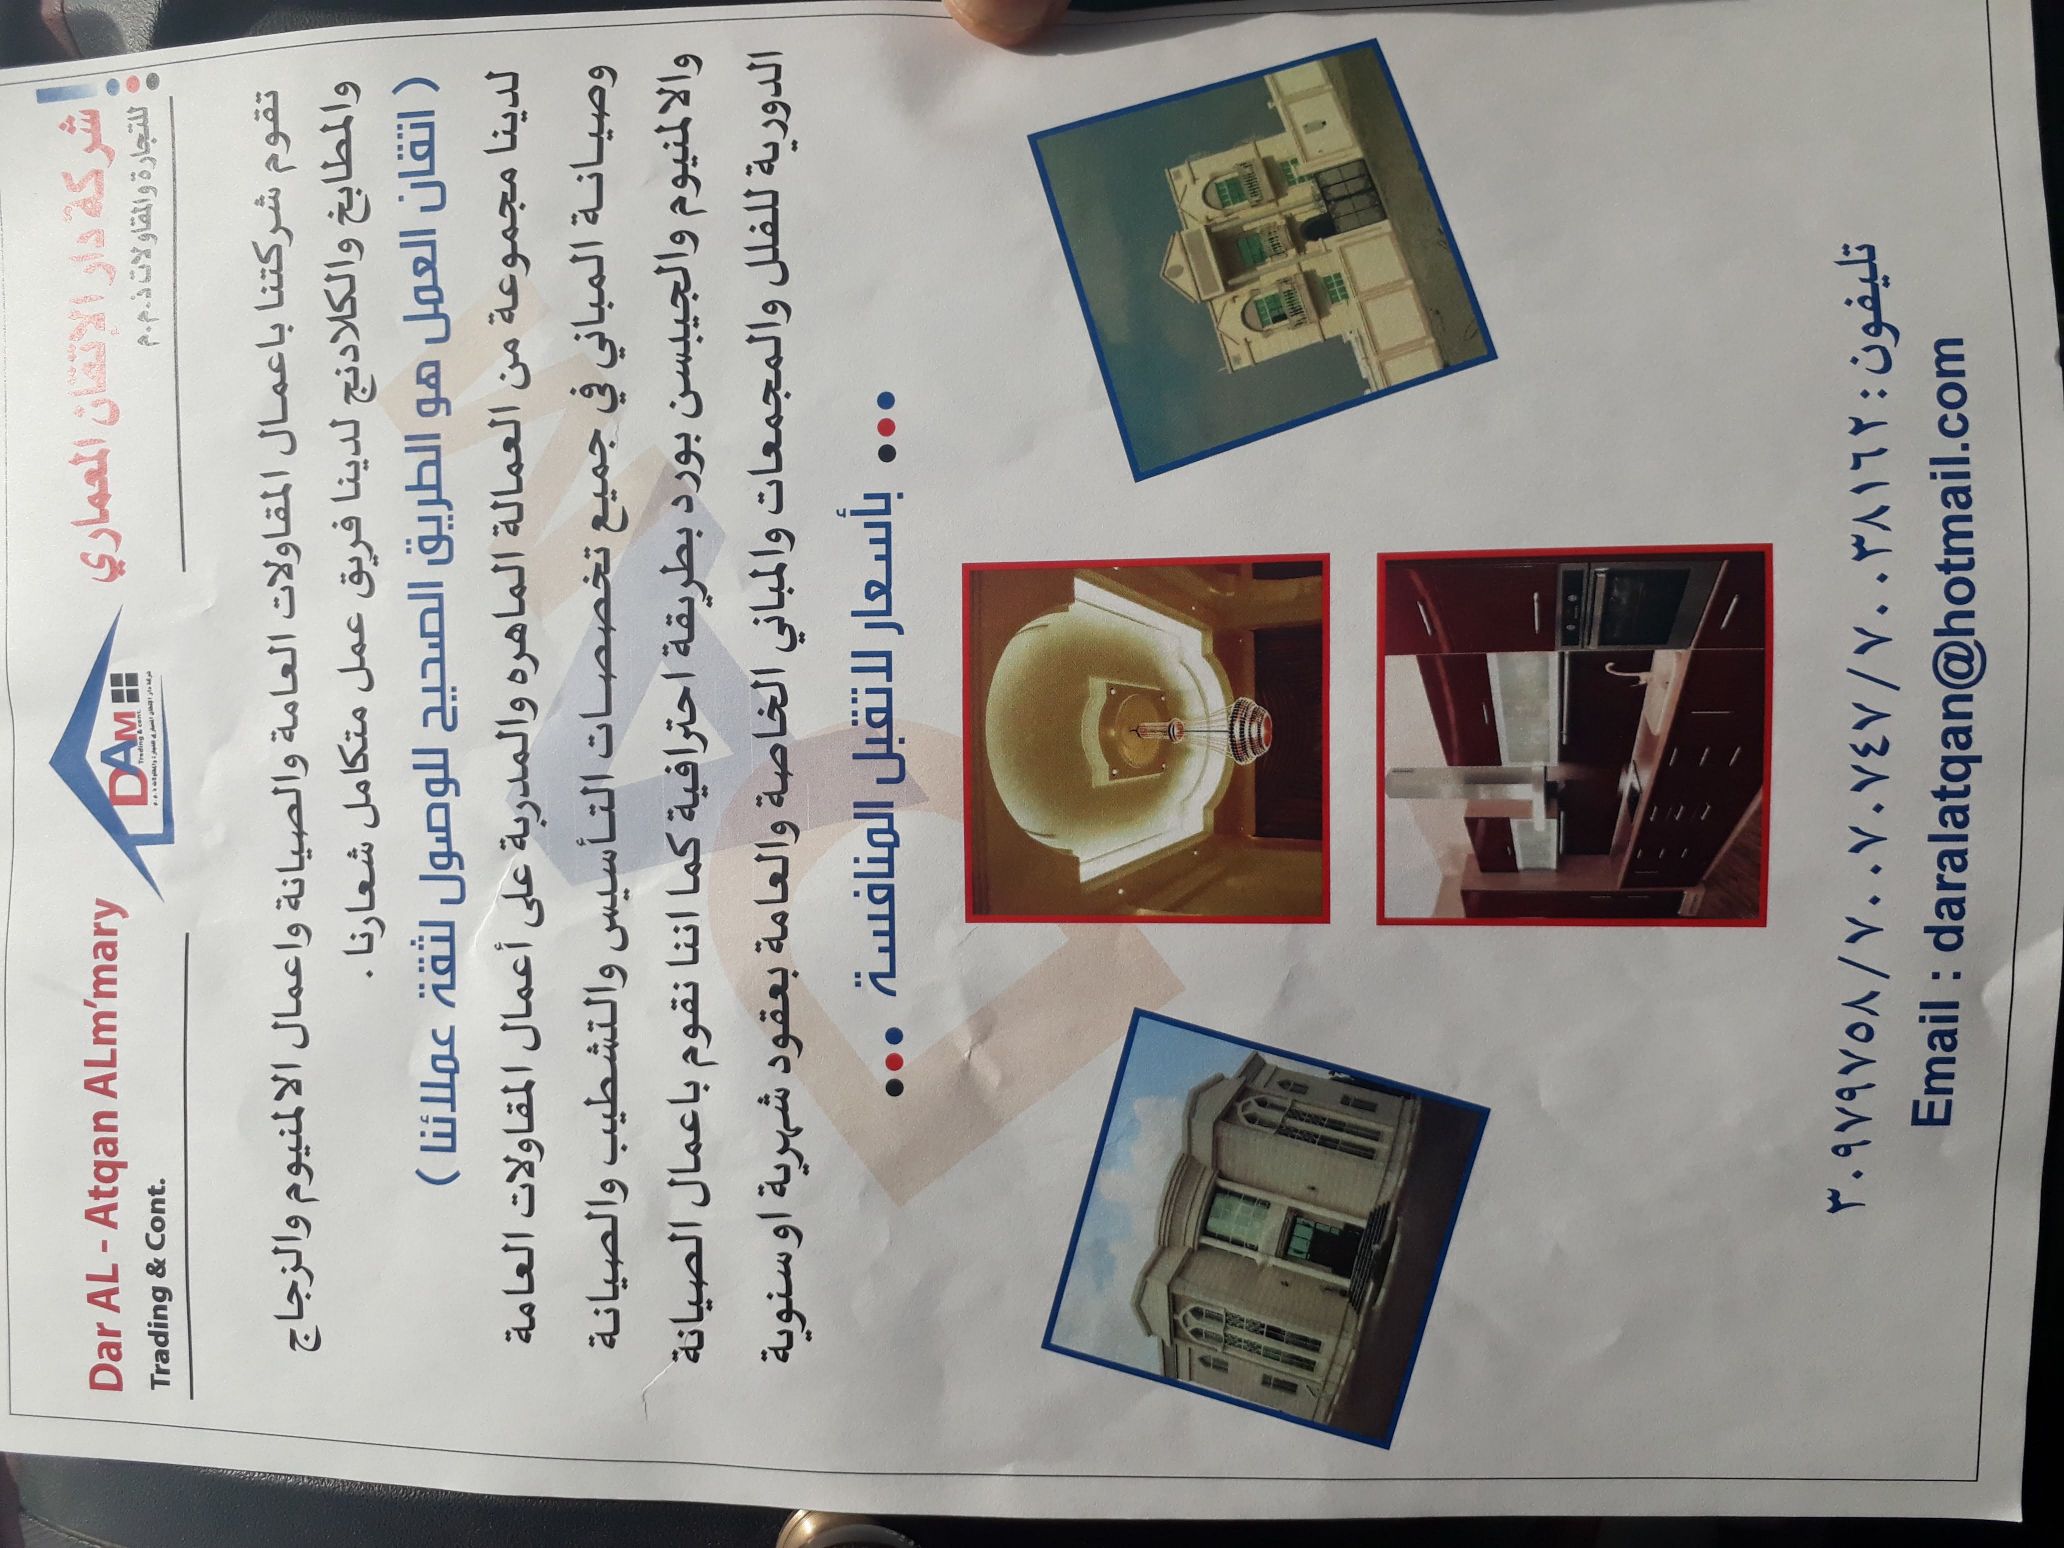 Dar AL - Atqan ALm'mary
Trading & Cont.
DAM
Trading & cont.
شركة دار الإتقان المعماري
للتجارة والمقاولات ذ.م.م
تقوم شركتنا باعمال المقاولات العامة والصيانة واعمال الالمنيوم والزجاج
والمطابخ والكلادنج لدينا فريق عمل متكامل شعارنا .
( اتقان العمل هو الطريق الصحيح للوصول لثقة عملائنا )
لدينا مجموعة من العمالة الماهره والمدربة على أعمال المقاولات العامة
وصيانة المباني في جميع تخصصات التأسيس والتشطيب والصيانة
والالمنيوم والجيبسن بورد بطريقة احترافية كما اننا نقوم باعمال الصيانة
الدورية للفلل والمجمعات والمباني الخاصة والعامة بعقود شهرية اوسنوية
بأسعار لاتقبل المنافسة
تليفون : ٣٠٩٧٩٧٥٨/٧٠٠٧٠٧٤٧/٧٠٠٣٨١٦٢
Email : daralatqan@hotmail.com